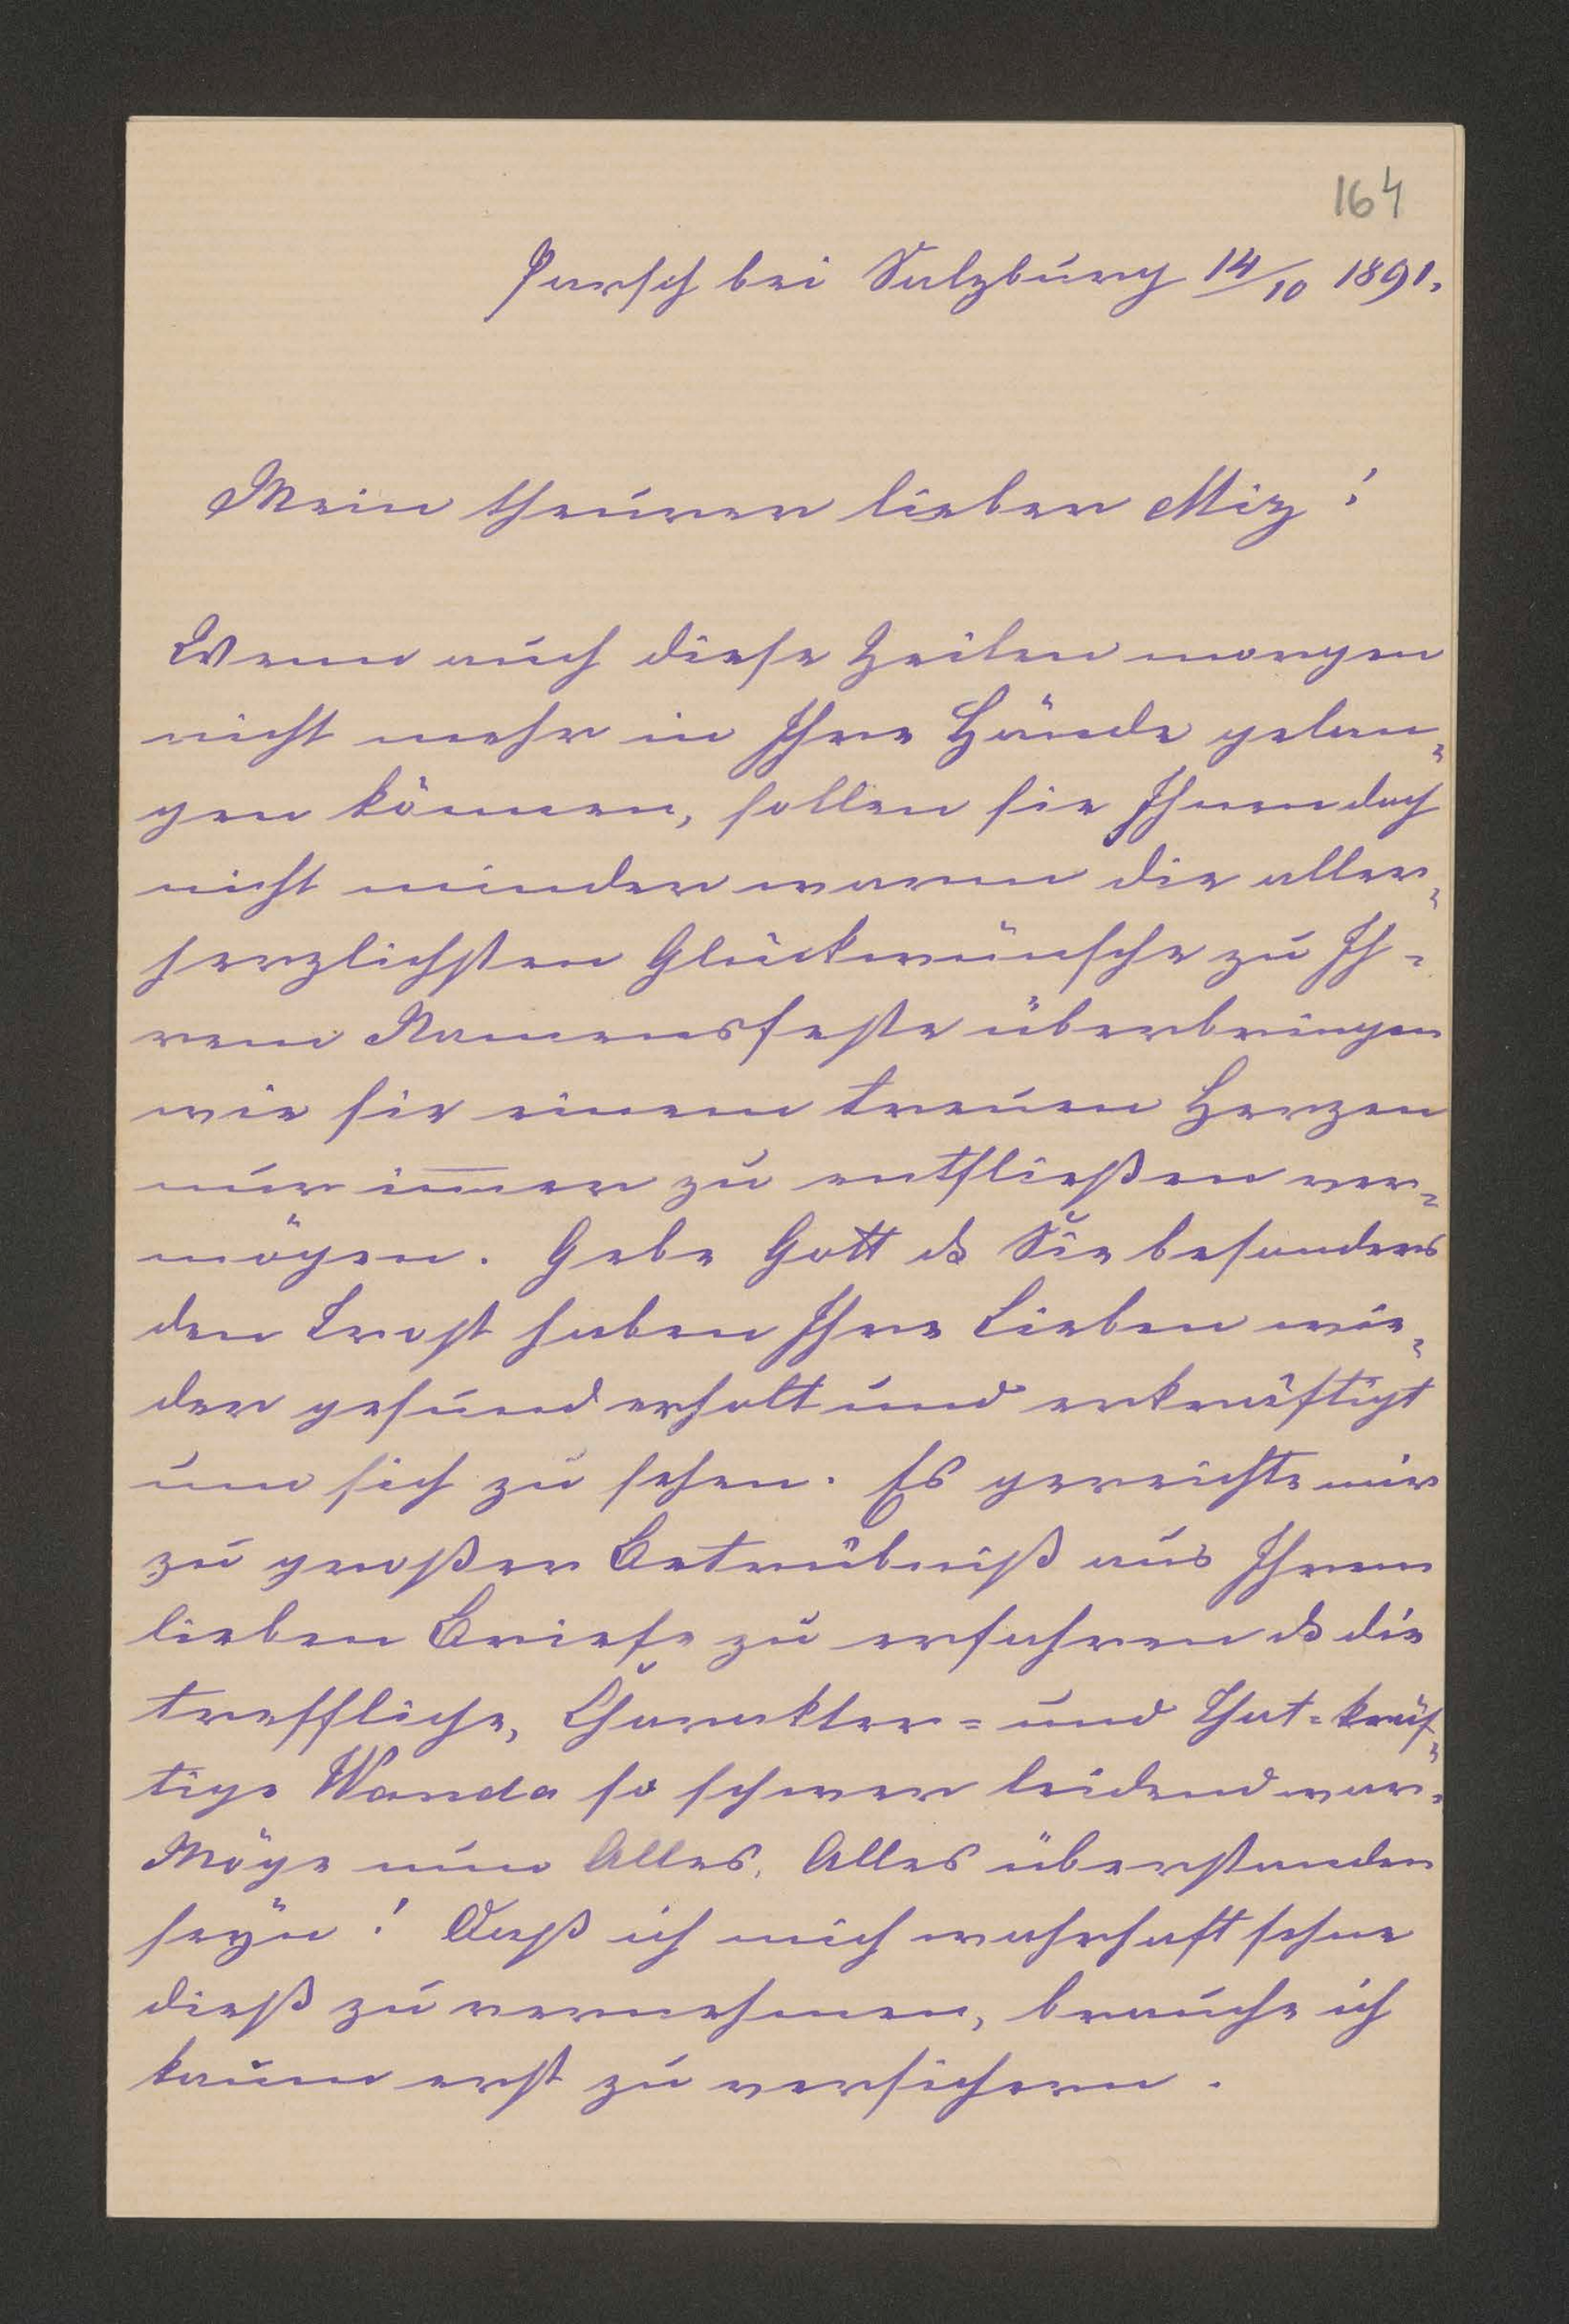 164
Parsch bei Salzburg 14/10 1891.
Mein theurer lieber Miz!
Wenn auch diese Zeilen morgen
nicht mehr in Ihre Hände gelan=
gen können, sollen sie Ihnen doch
nicht minder warm die aller=
herzlichsten Glückwünsche zu Ih=
rem Namensfeste überbringen
wie sie einem treuen Herzen
nur im̅er zu entfließen ver=
mögen. Gebe Gott ds Sie besonders
den Trost haben Ihre Lieben wie=
der gesund erholt und erkräftigt
um sich zu sehen. Es gereichte mir
zu großer Betrübniß aus Ihrem
lieben Briefe zu erfahren ds die
treffliche, Charakter= und That=kräf=
tige Wanda so schwer leidend war.
Möge nun Alles, Alles überstanden
seÿn! Daß ich mich wahrhaft sehne
dieß zu vernehmen, brauche ich
kaum erst zu versichern.